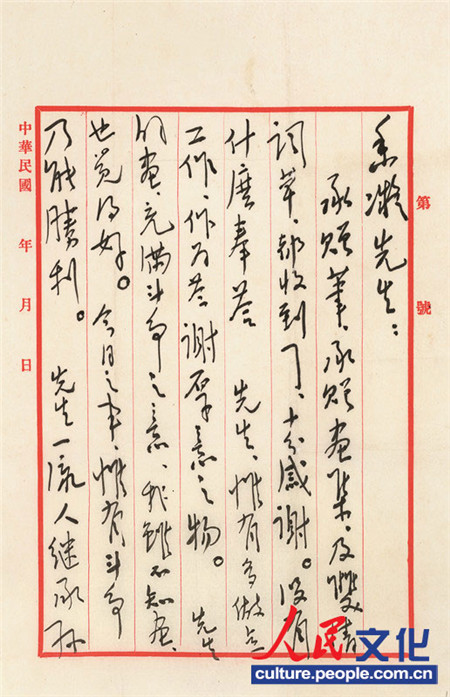 第 號
香凝先生：
承贈筆、承贈画集、及雙清
詞草、都收到了、十分感謝。没有
什麽奉答 先生、惟有多做点
工作、作为答謝厚意之物。 先生
的画、充满斗争之意、我雖不知画、
也覚得好。 今日之事、惟有斗争
乃能勝利。 先生一流人继承孙
中華民國 年 月 日
人民文化
culture.people.com.cn